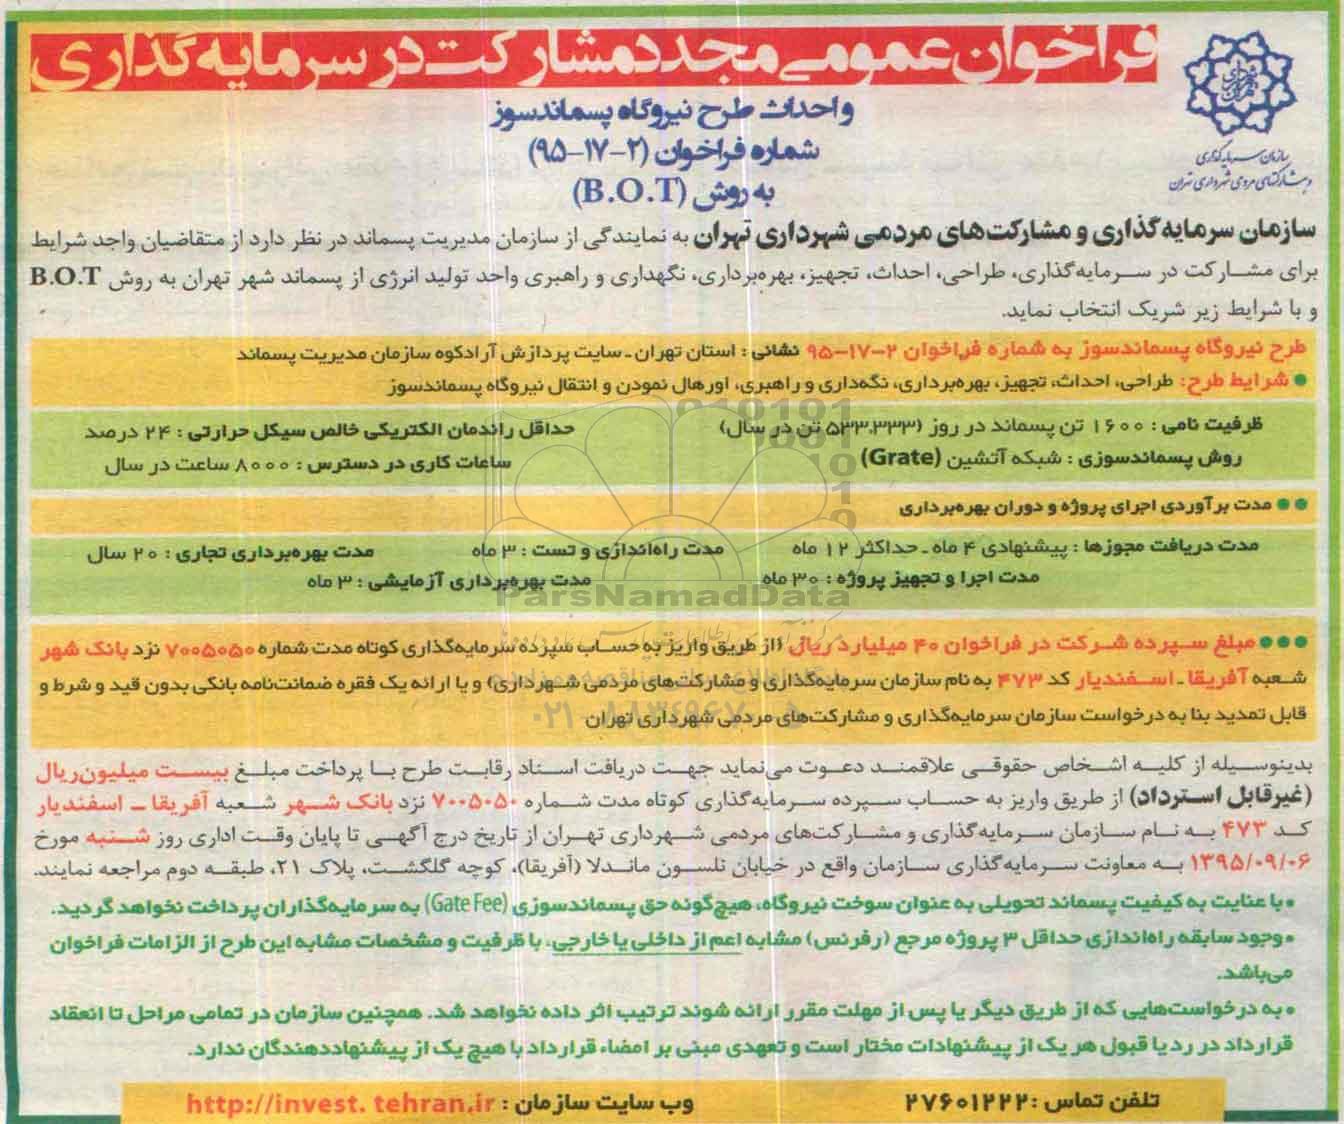 فراخوان عمومی مجدد مشارکت در سرمایه‌گذاری
سازمان سرمایه‌گذاری
و مشارکتهای مردمی شهرداری تهران
و احداث طرح نیروگاه پسماندسوز
شماره فراخوان (۲-۱۷-۹۵)
به روش (B.O.T)
سازمان سرمایه‌گذاری و مشارکت‌های مردمی شهرداری تهران به نمایندگی از سازمان مدیریت پسماند در نظر دارد از متقاضیان واجد شرایط
برای مشارکت در سرمایه‌گذاری، طراحی، احداث، تجهیز، بهره‌برداری، نگهداری و راهبری واحد تولید انرژی از پسماند شهر تهران به روش B.O.T
و با شرایط زیر شریک انتخاب نماید.
طرح نیروگاه پسماندسوز به شماره فراخوان ۲-۱۷-۹۵ نشانی : استان تهران ـ سایت پردازش آرادکوه سازمان مدیریت پسماند
● شرایط طرح: طراحی، احداث، تجهیز، بهره‌برداری، نگه‌داری و راهبری، اورهال نمودن و انتقال نیروگاه پسماندسوز
ظرفیت نامی : ۱۶۰۰ تن پسماند در روز (۵۳۳،۳۳۳ تن در سال) حداقل راندمان الکتریکی خالص سیکل حرارتی : ۲۴ درصد
روش پسماندسوزی : شبکه آتشین (Grate) ساعات کاری در دسترس : ۸۰۰۰ ساعت در سال
●● مدت برآوردی اجرای پروژه و دوران بهره‌برداری
مدت دریافت مجوزها : پیشنهادی ۴ ماه ـ حداکثر ۱۲ ماه مدت راه‌اندازی و تست : ۳ ماه مدت بهره‌برداری تجاری : ۲۰ سال
مدت اجرا و تجهیز پروژه : ۳۰ ماه مدت بهره‌برداری آزمایشی : ۳ ماه
ParsNamadData
●●● مبلغ سپرده شرکت در فراخوان ۴۰ میلیارد ریال (از طریق واریز به حساب سپرده سرمایه‌گذاری کوتاه مدت شماره ۷۰۰۵۰۵۰ نزد بانک شهر
شعبه آفریقا ـ اسفندیار کد ۴۷۳ به نام سازمان سرمایه‌گذاری و مشارکت‌های مردمی شهرداری) و یا ارائه یک فقره ضمانت‌نامه بانکی بدون قید و شرط و
قابل تمدید بنا به درخواست سازمان سرمایه‌گذاری و مشارکت‌های مردمی شهرداری تهران
بدینوسیله از کلیه اشخاص حقوقی علاقمند دعوت می‌نماید جهت دریافت اسناد رقابت طرح با پرداخت مبلغ بیست میلیون‌ریال
(غیرقابل استرداد) از طریق واریز به حساب سپرده سرمایه‌گذاری کوتاه مدت شماره ۷۰۰۵۰۵۰ نزد بانک شهر شعبه آفریقا ـ اسفندیار
کد ۴۷۳ به نام سازمان سرمایه‌گذاری و مشارکت‌های مردمی شهرداری تهران از تاریخ درج آگهی تا پایان وقت اداری روز شنبه مورخ
۱۳۹۵/۰۹/۰۶ به معاونت سرمایه‌گذاری سازمان واقع در خیابان نلسون ماندلا (آفریقا)، کوچه گلگشت، پلاک ۲۱، طبقه دوم مراجعه نمایند.
• با عنایت به کیفیت پسماند تحویلی به عنوان سوخت نیروگاه، هیچ‌گونه حق پسماندسوزی (Gate Fee) به سرمایه‌گذاران پرداخت نخواهد گردید.
• وجود سابقه راه‌اندازی حداقل ۳ پروژه مرجع (رفرنس) مشابه اعم از داخلی یا خارجی، با ظرفیت و مشخصات مشابه این طرح از الزامات فراخوان
می‌باشد.
• به درخواست‌هایی که از طریق دیگر یا پس از مهلت مقرر ارائه شوند ترتیب اثر داده نخواهد شد. همچنین سازمان در تمامی مراحل تا انعقاد
قرارداد در رد یا قبول هر یک از پیشنهادات مختار است و تعهدی مبنی بر امضاء قرارداد با هیچ یک از پیشنهاددهندگان ندارد.
تلفن تماس : ۲۷۶۰۱۲۲۲ وب سایت سازمان : http://invest. tehran.ir